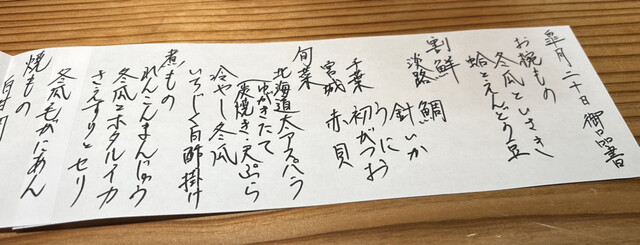 皐月二十日 御品書
お椀もの
冬瓜といさき
蛤とえんどう豆
割鮮
淡路 鯛
針いか
うに
千葉 初がつお
宮城 赤貝
旬菜
北海道太アスパラ
ゆがきたて
炭焼き、天ぷら
冷やし冬瓜
いちじく白酢掛け
煮もの
れんこんまんじゅう
冬瓜とホタルイカ
さえずりとセリ
冬瓜毛がにあん
焼もの